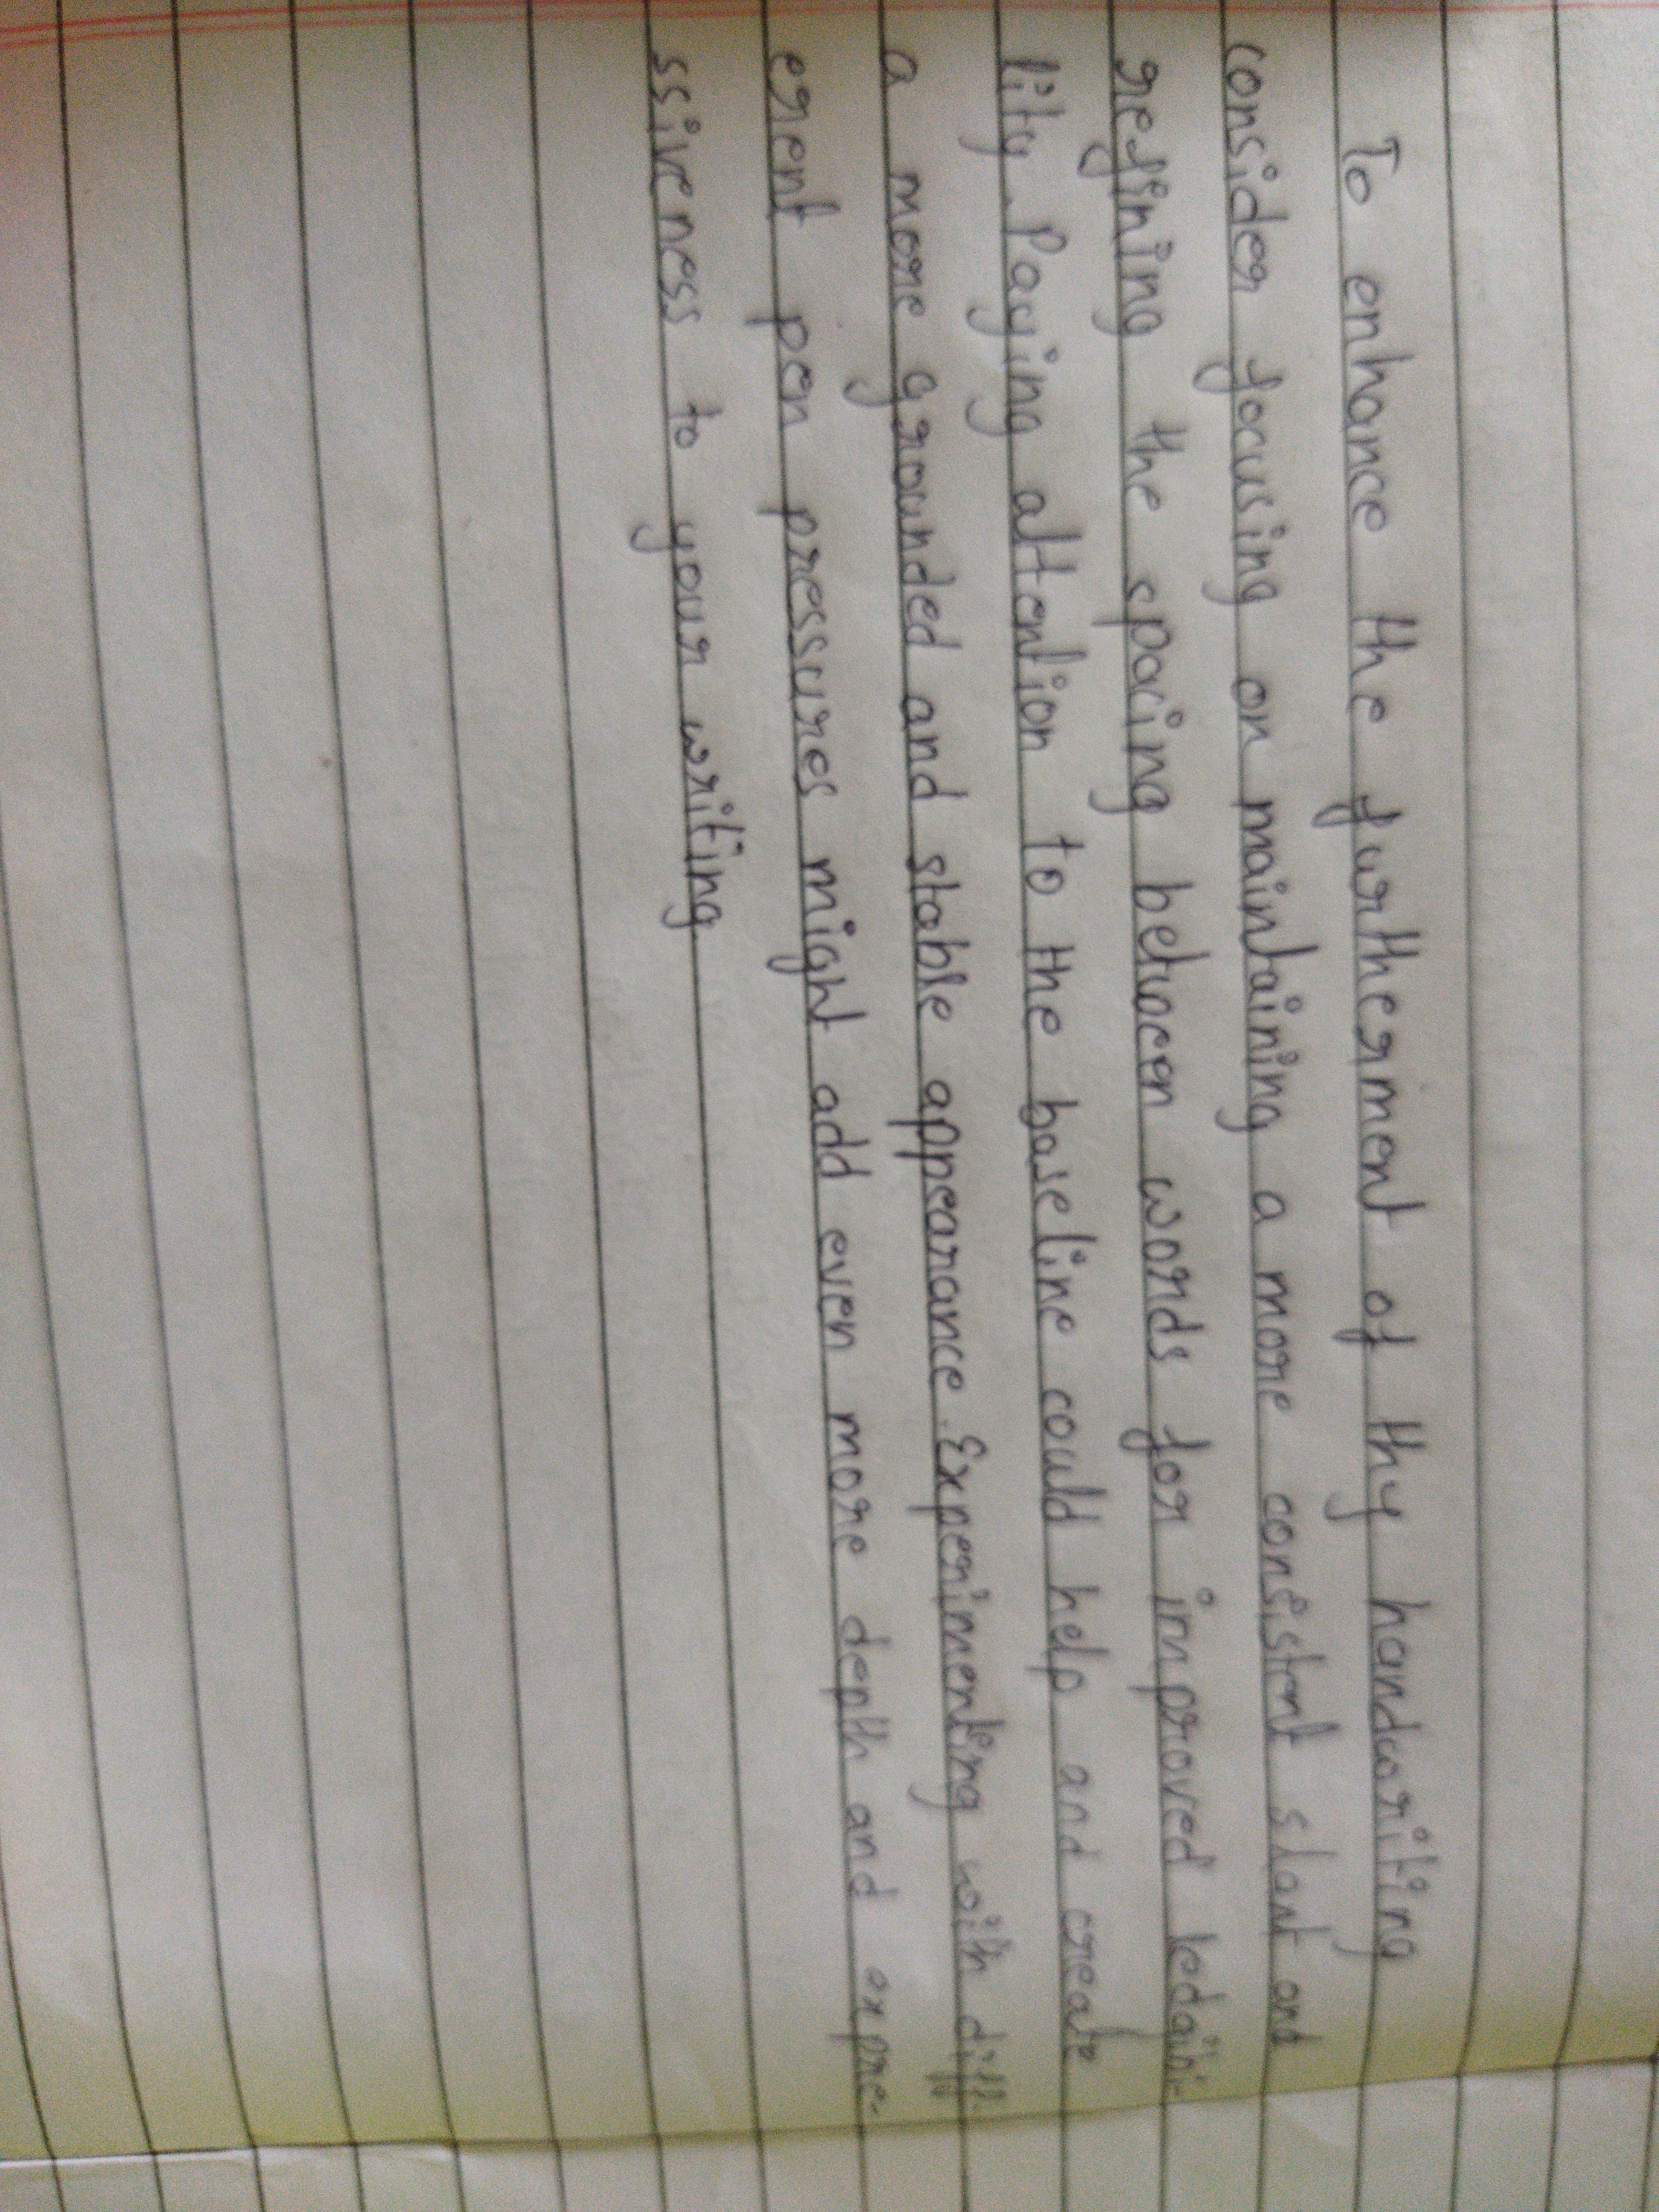 To enhance the furtherment of thy handwriting
consider focusing on maintaining a more consistent slant and
refining the spacing between words for improved ledaibi-
lity. Paying attention to the baseline could help and create
a more grounded and stable appearance. Experimenting with diff-
erent pen pressures might add even more depth and expre-
ssiveness to your writing